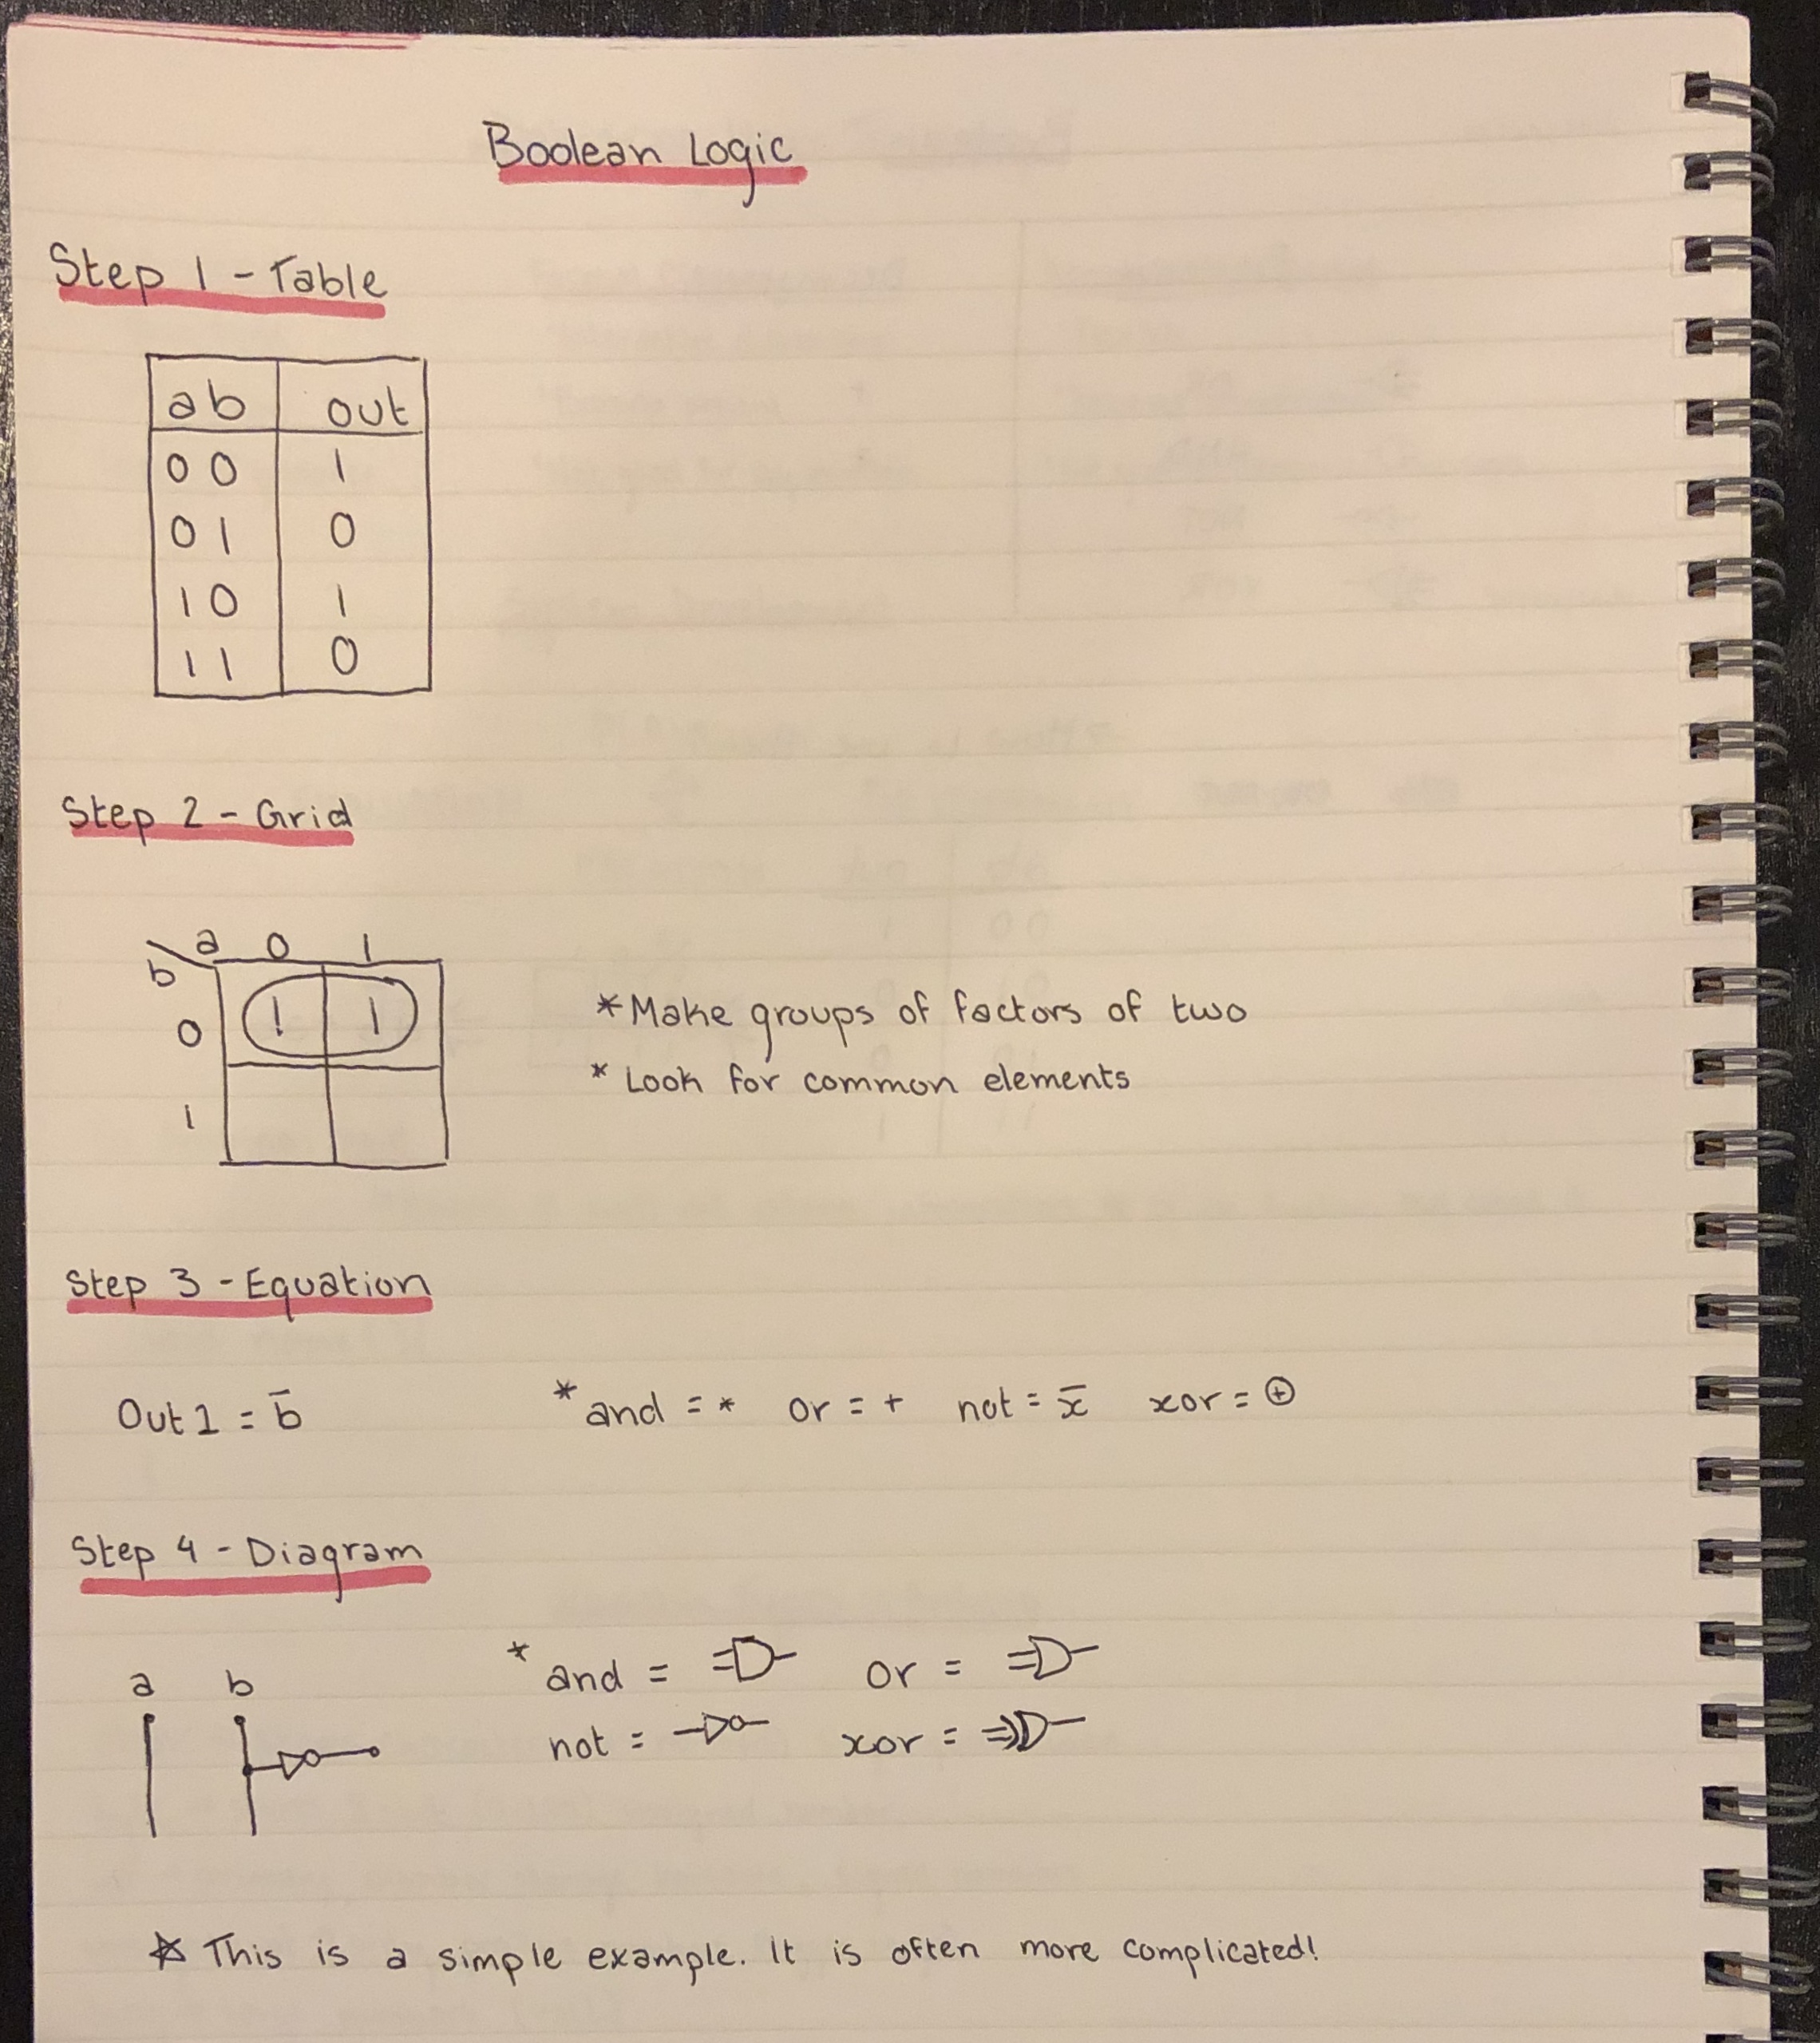 Boolean Logic
Step 1 - Table
ab out
00 1
01 0
10 1
11 0
Step 2 - Grid
a 0 1
b
0 1 1
1
* Make groups of factors of two
* Look for common elements
Step 3 - Equation
Out1 = b̄ * and = * or = + not = x̄ xor = ⊕
Step 4 - Diagram
a b
* and = or =
not = xor =
☆ This is a simple example. It is often more complicated!